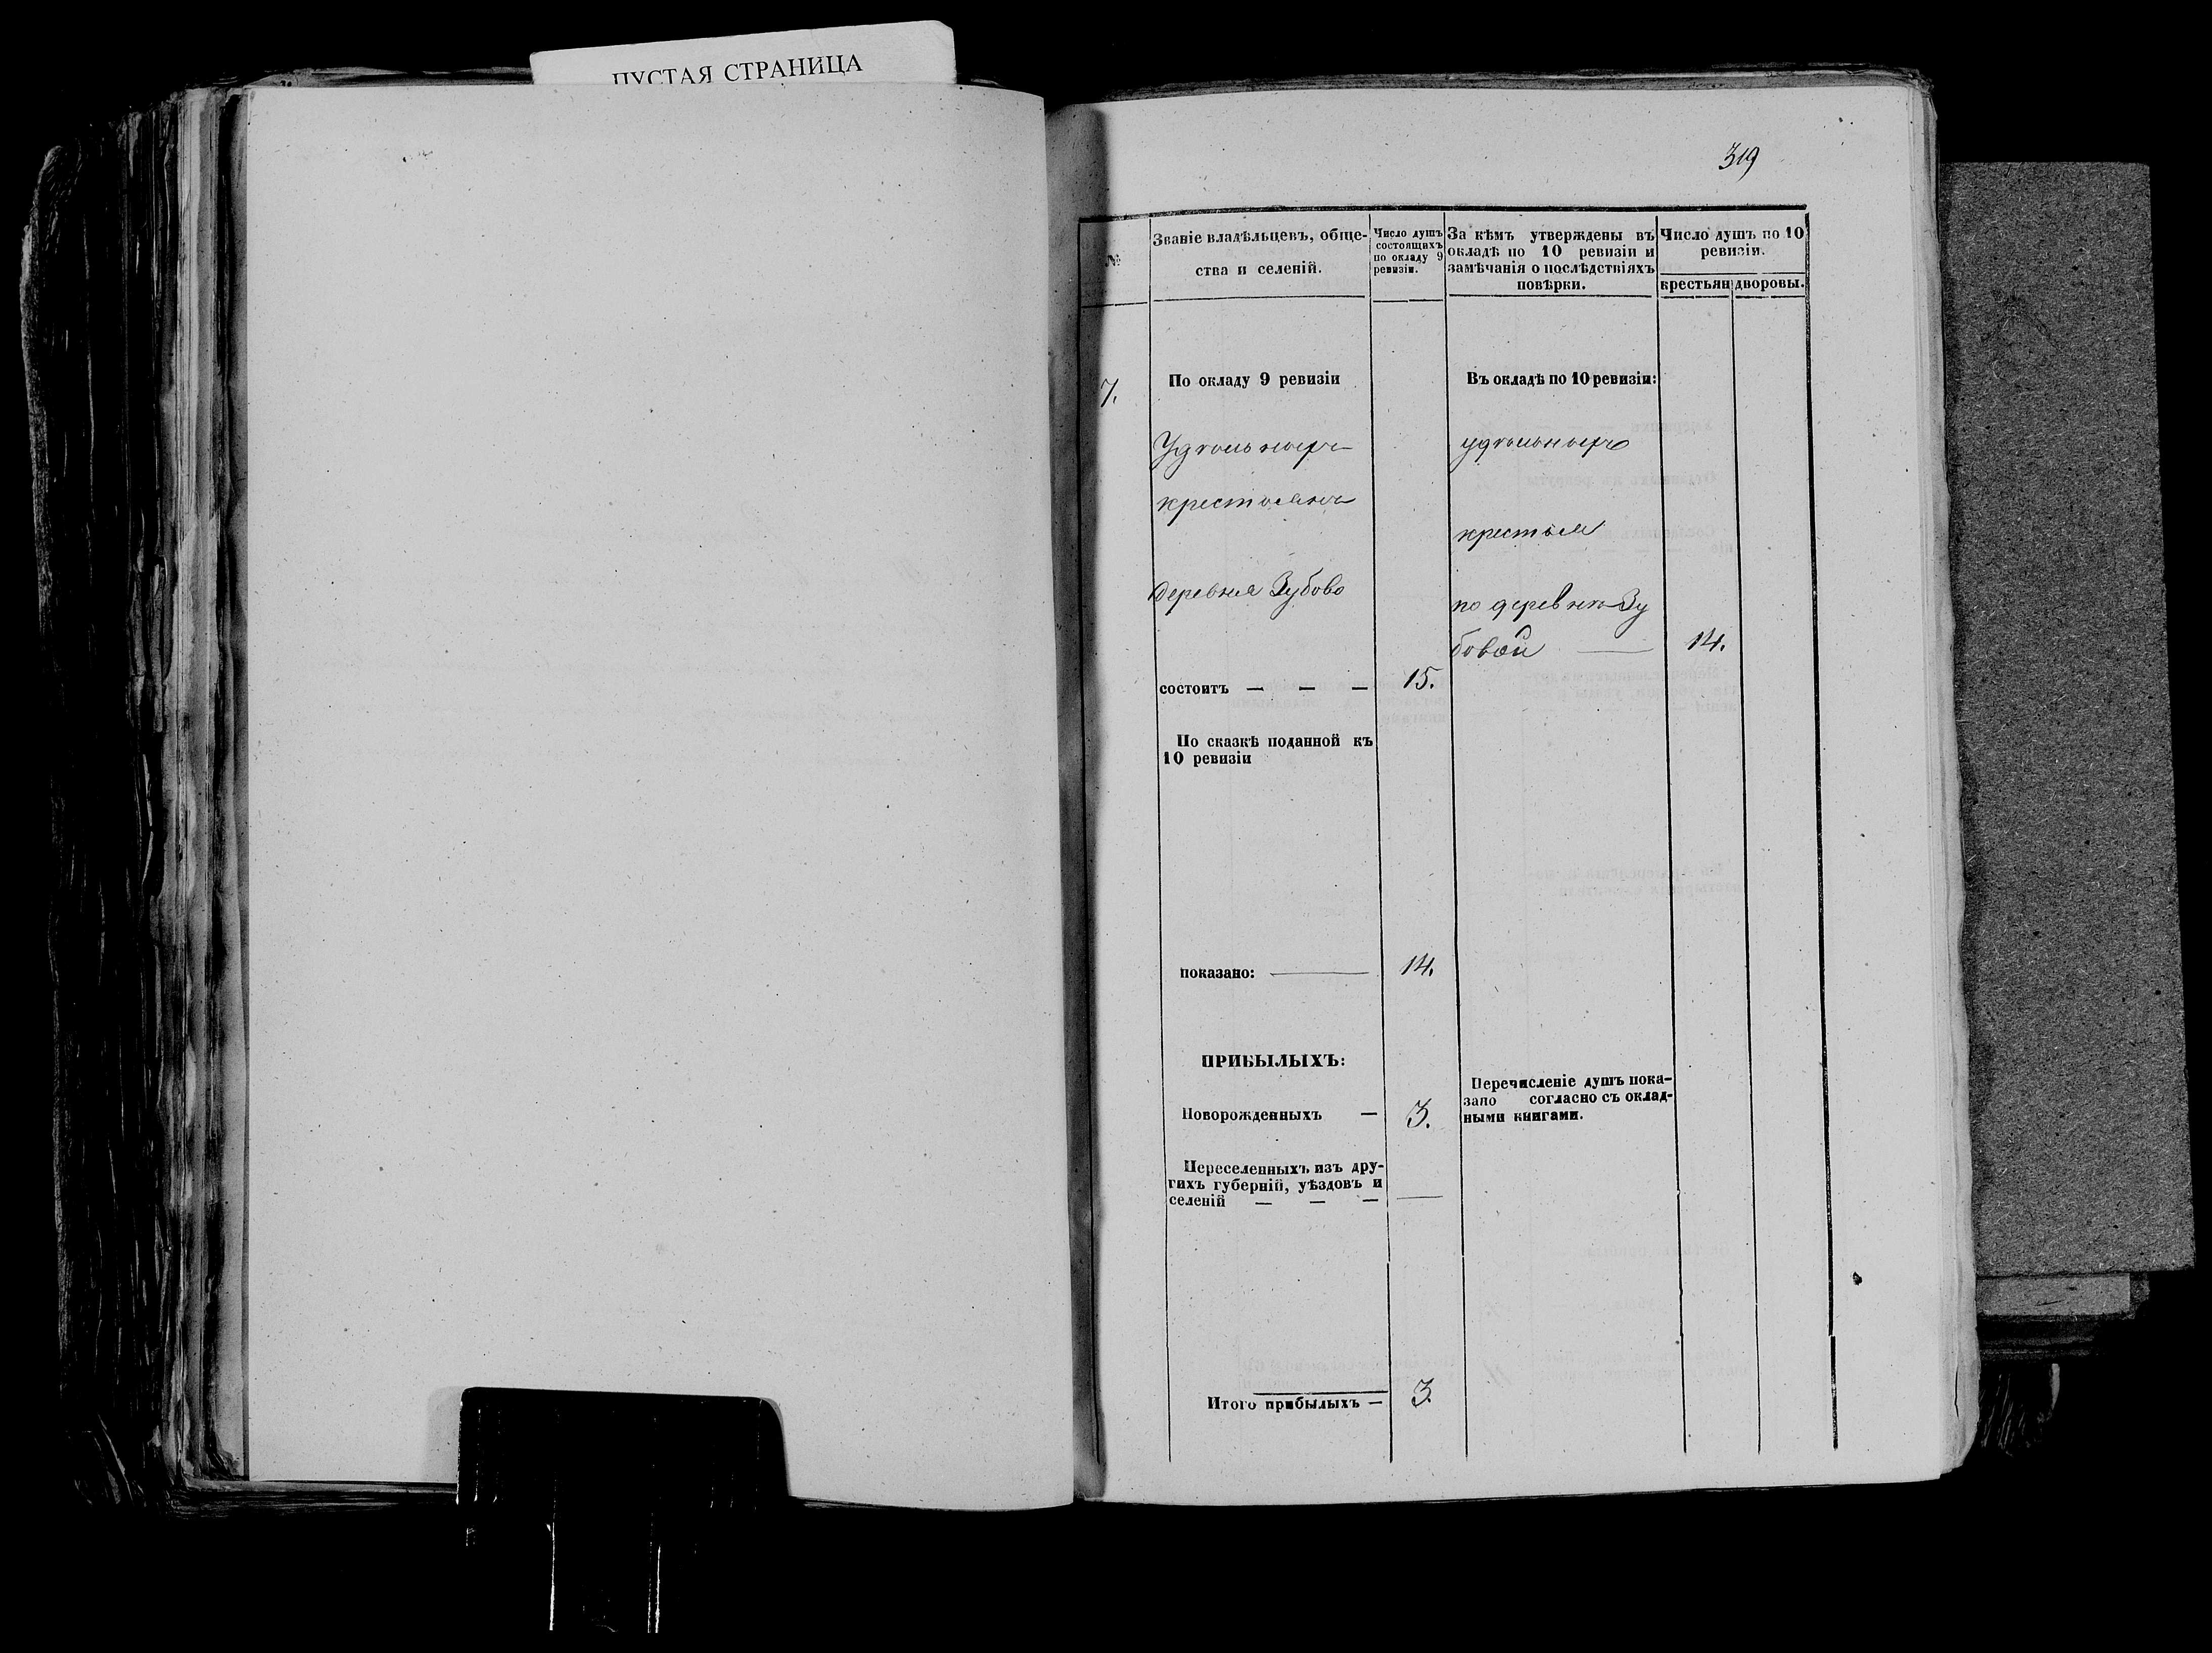 ПУСТАЯ СТРАНИЦА
319
№
Званіе владѣльцевъ, обще-
ства и селеній.
Число душъ
состоящихъ
по окладу 9
ревизіи.
За кѣмъ утверждены въ
окладѣ по 10 ревизіи и
замѣчанія о послѣдствіяхъ
повѣрки.
Число душъ по 10
ревизіи.
крестьян
дворовы.
7.
По окладу 9 ревизіи
Удѣльныхъ
крестьянъ
деревня Зубово
состоитъ — — — 15.
По сказкѣ поданной къ
10 ревизіи
показано: — 14.
ПРИБЫЛЫХЪ:
Новорожденныхъ — 3.
Переселенныхъ изъ дру-
гихъ губерній, уѣздовъ и
селеній — — — —
Итого прибылыхъ — 3.
Въ окладѣ по 10 ревизіи:
удѣльныхъ
крестья
по деревнѣ Зу
бовой — 14.
Перечисленіе душъ пока-
зано согласно съ оклад-
ными книгами.